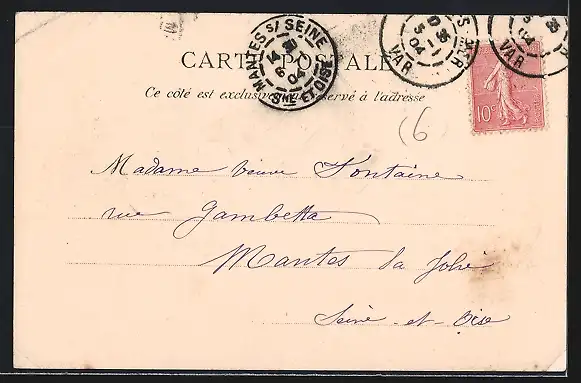 CARTE POSTALE
Ce côté est exclusivement réservé à l'adresse
MANTES S/ SEINE
14
6
04
S^NE ET OISE
VAR
5
04
VAR
5
04
10c
6
Madame Veuve Fontaine
rue Gambetta
Mantes la Jolie
Seine-et-Oise